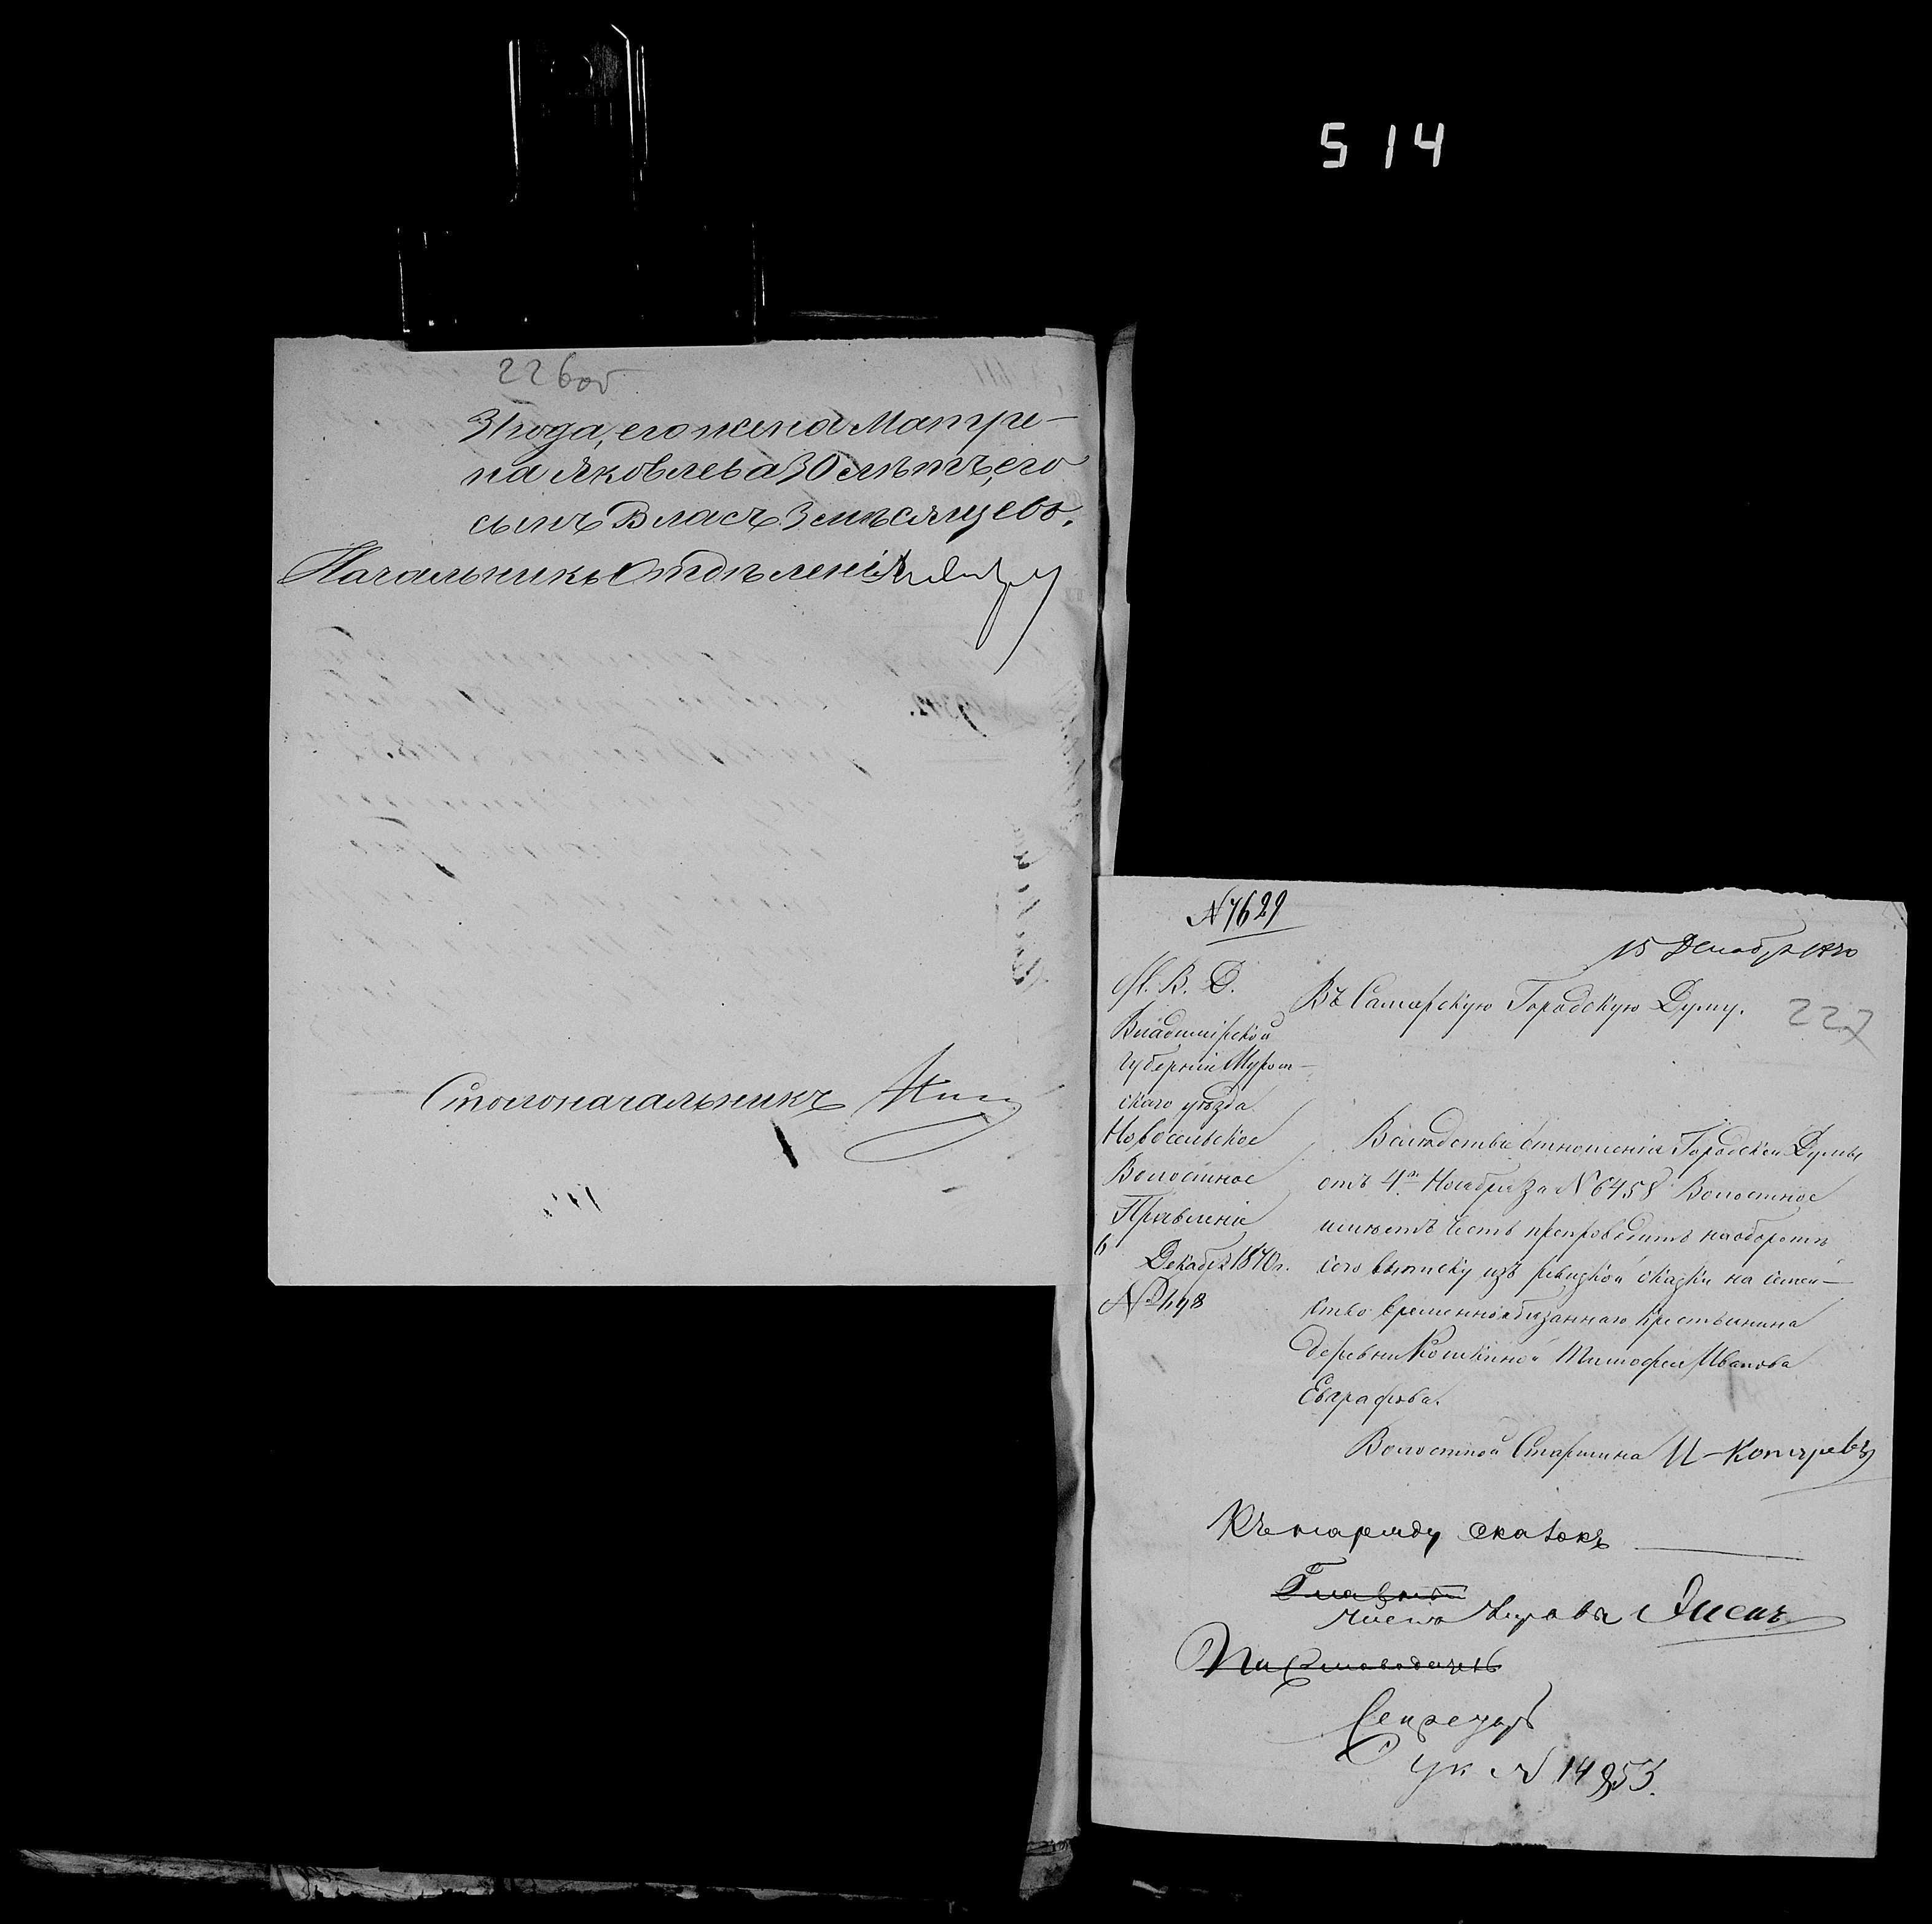 514
226 об
31 года, его жена Матре-
на Яковлева 30 лѣтъ, его
сынъ Власъ 3 мѣсяцевъ.
Начальникъ Отдѣленія
Столоначальникъ
N 7629
15 Декабря 1870
М. В. Д.
Владимірской
Губерніи Муром-
скаго уѣзда
Новосельское
Волостное
Правленіе
6 Декабря 1870 г.
№
Въ Самарскую Городскую Думу.
227
Вслѣдствіе отношенія Городской Думы
отъ 4го Ноября за N 6458 Волостное
имѣетъ честь препроводить на оборотѣ
сего выписку изъ ревизкой сказки на семей-
ство временнообязаннаго крестьянина
деревни Кошкиной Тимофея Иванова
Евграфова.
Волостной Старшина И-
Къ наряду сказокъ
Главный
Членъ Управы
Секретарь
N 14853.